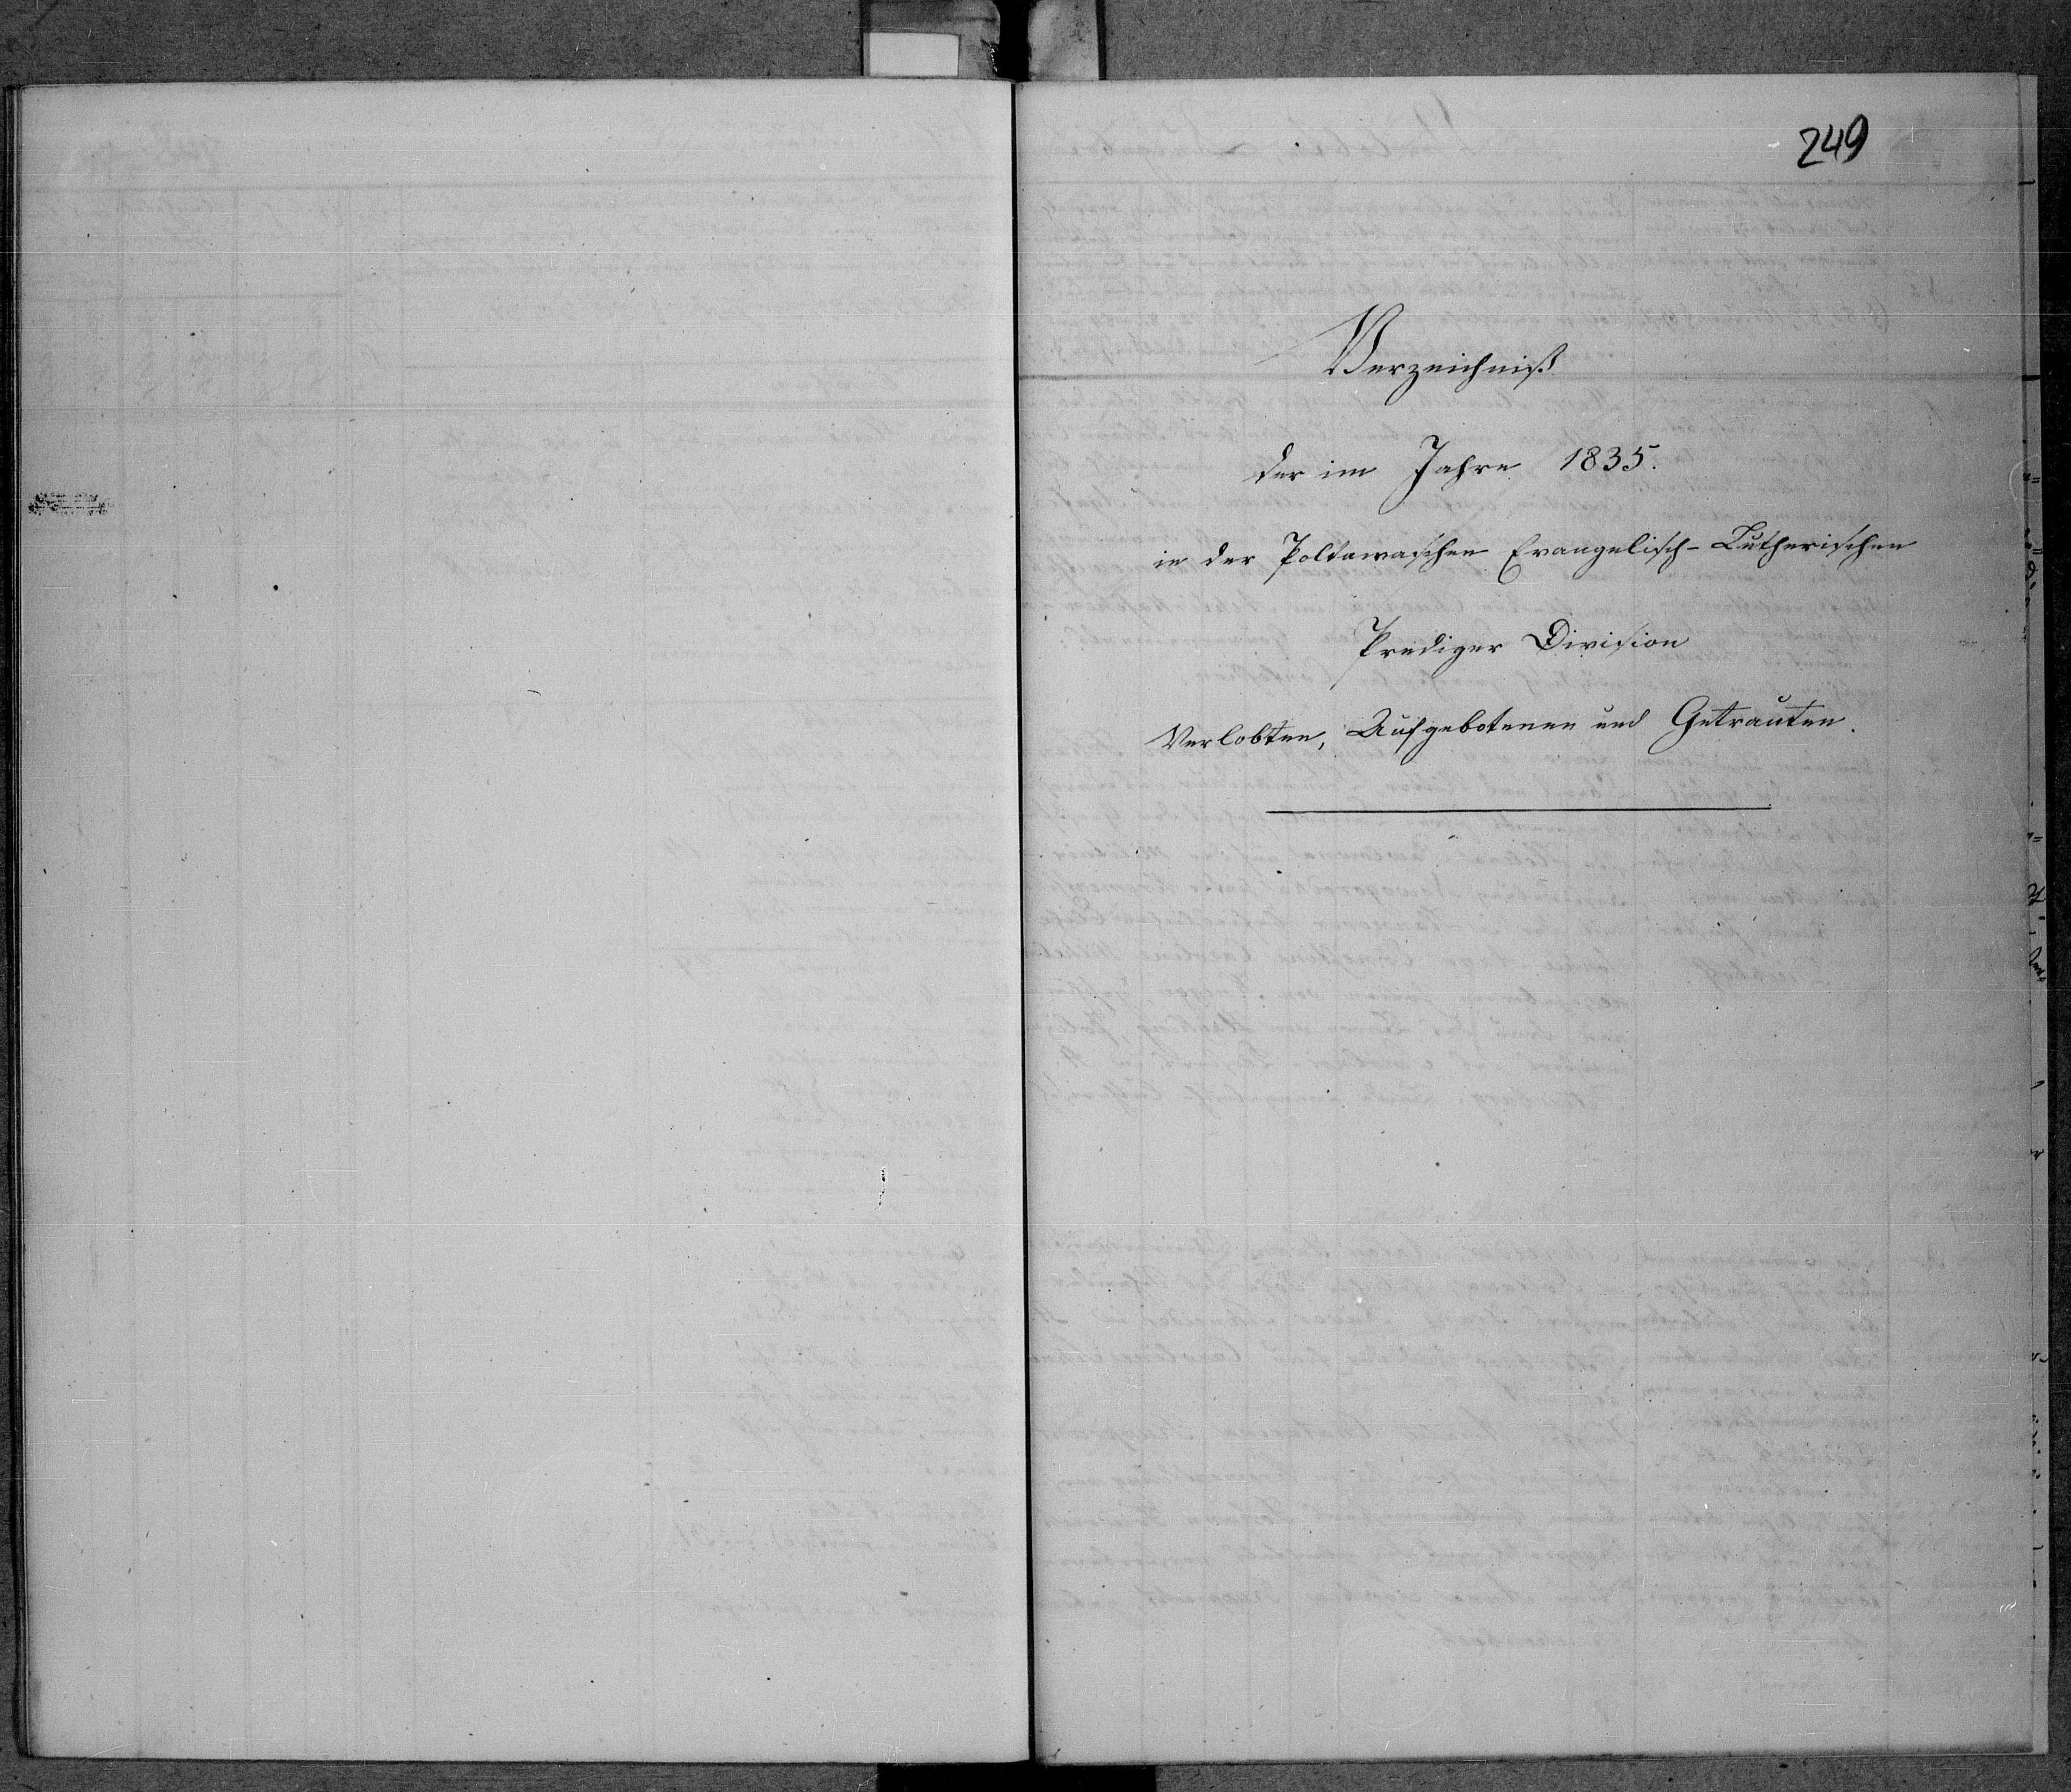 249
Verzeichniß
der im Jahre 1835.
in der Poltawaschen Evangelisch-Lutherischen
Prediger Division
Verlobten, Aufgebotenen und Getrauten.